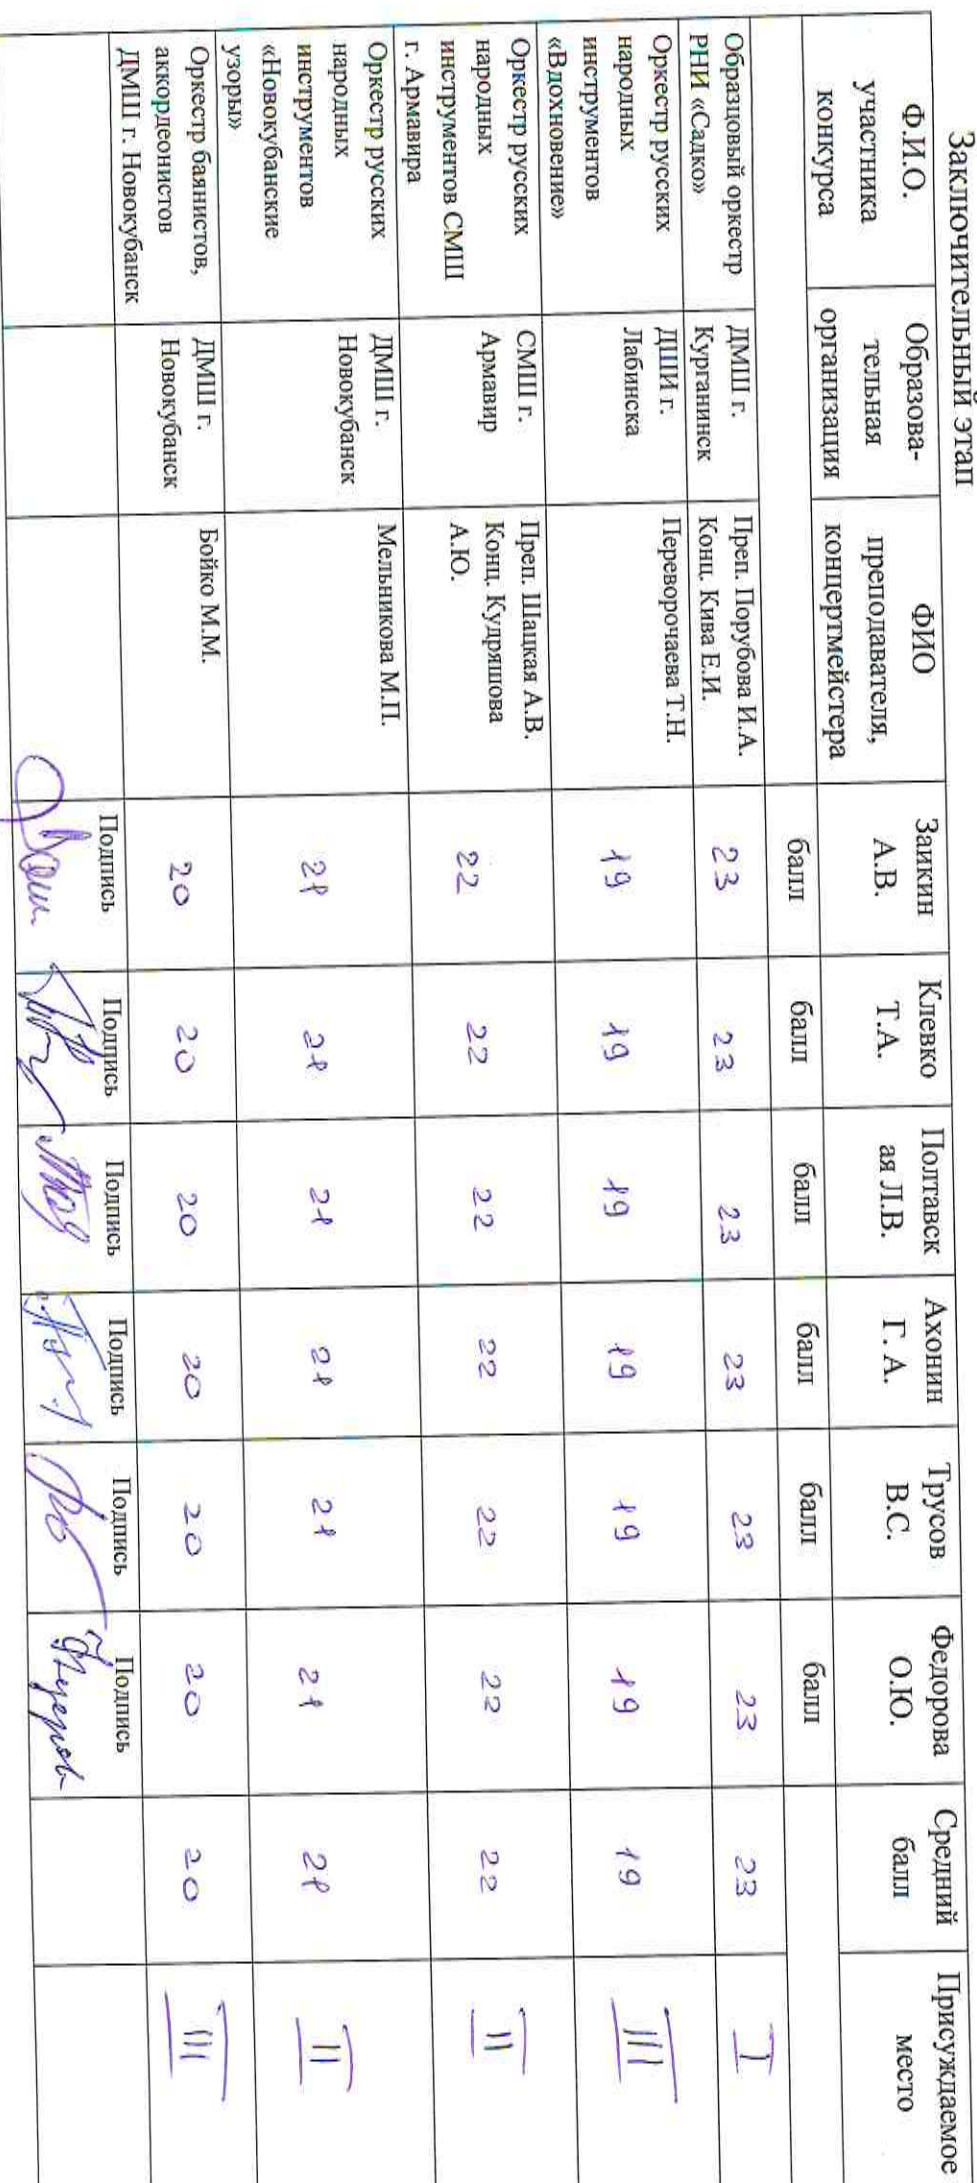 Заключительный этап
Ф.И.О. участника конкурса | Образова-тельная организация | ФИО преподавателя, концертмейстера | Заикин А.В. | Клевко Т.А. | Полтавск ая Л.В. | Ахонин Г. А. | Трусов В.С. | Федорова О.Ю. | Средний балл | Присуждаемое место
балл | балл | балл | балл | балл | балл
Образцовый оркестр РНИ «Садко» | ДМШ г. Курганинск | Преп. Порубова И.А. Конц. Кива Е.И. | 23 | 23 | 23 | 23 | 23 | 23 | 23 | I
Оркестр русских народных инструментов «Вдохновение» | ДШИ г. Лабинска | Переворочаева Т.Н. | 19 | 19 | 19 | 19 | 19 | 19 | 19 | III
Оркестр русских народных инструментов СМШ г. Армавира | СМШ г. Армавир | Преп. Шацкая А.В. Конц. Кудряшова А.Ю. | 22 | 22 | 22 | 22 | 22 | 22 | 22 | II
Оркестр русских народных инструментов «Новокубанские узоры» | ДМШ г. Новокубанск | Мельникова М.П. | 21 | 21 | 21 | 21 | 21 | 21 | 21 | II
Оркестр баянистов, аккордеонистов ДМШ г. Новокубанск | ДМШ г. Новокубанск | Бойко М.М. | 20 | 20 | 20 | 20 | 20 | 20 | 20 | III
Подпись | Подпись | Подпись | Подпись | Подпись | Подпись